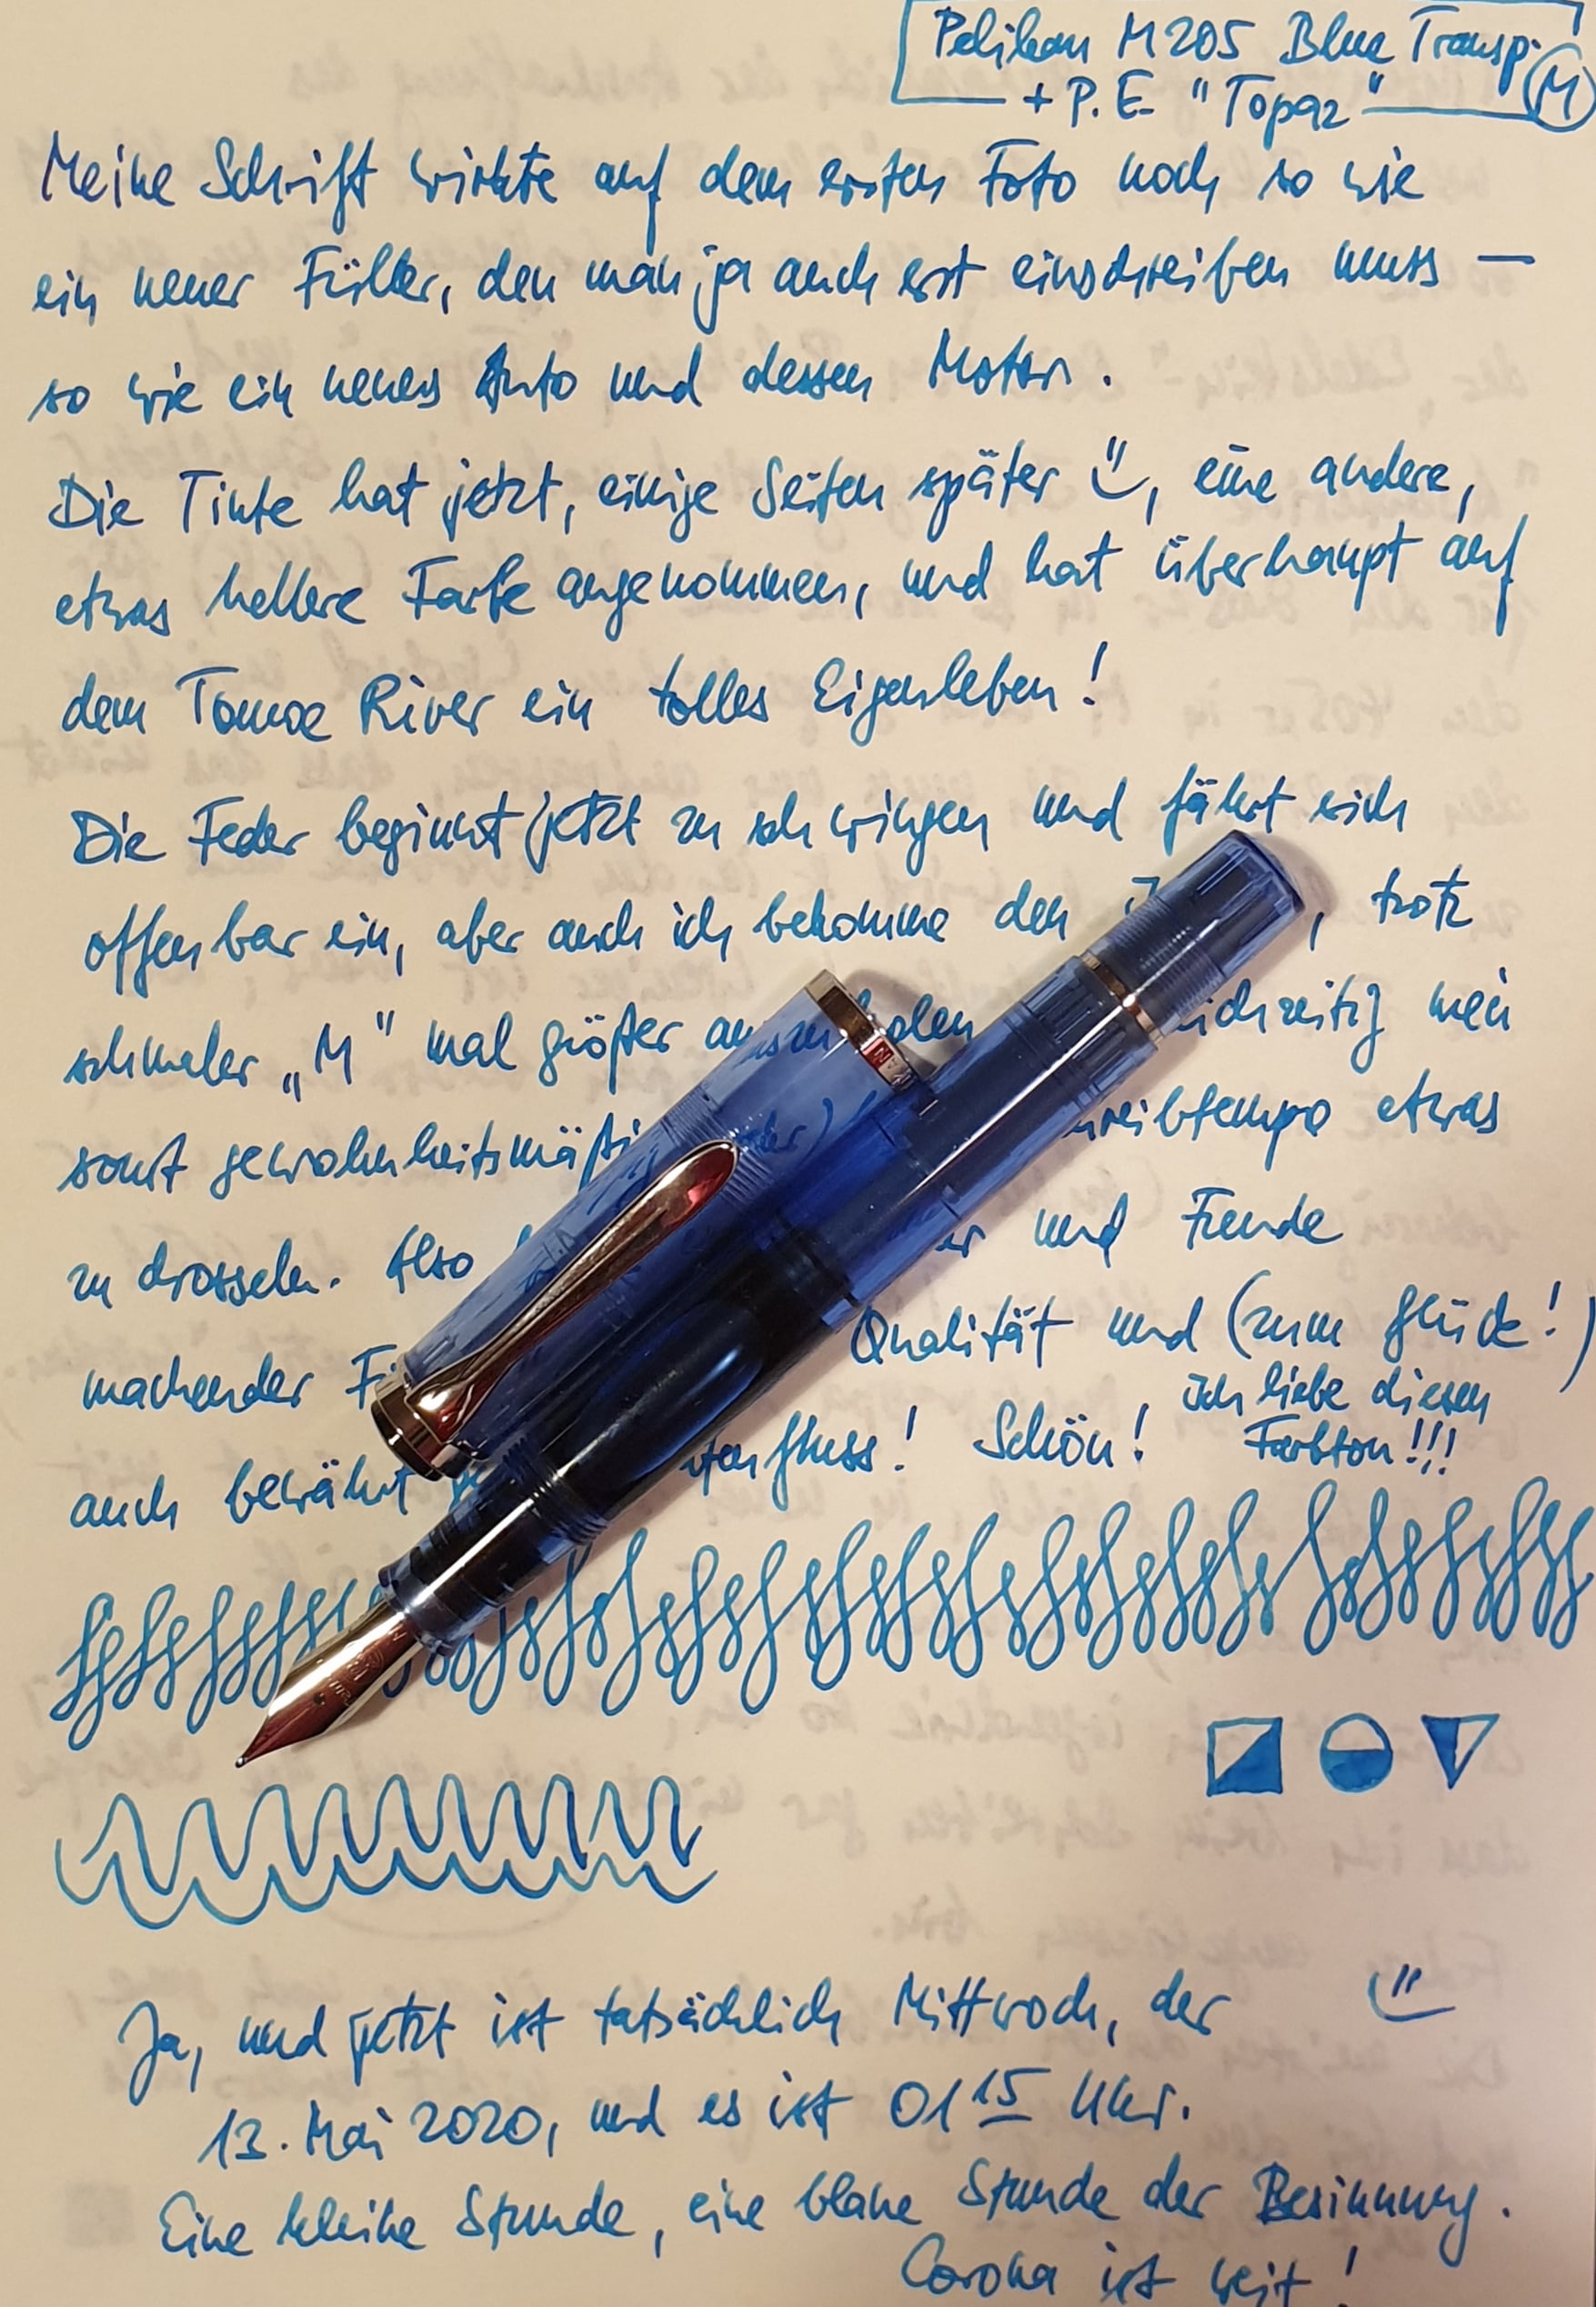 Pelikan M205 Blue Transp.
+ P.E. "Topaz" M
Meine Schrift wirkte auf dem ersten Foto noch so wie
ein neuer Füller, den man ja auch erst einschreiben muss —
so wie ein neues Auto und dessen Motor.
Die Tinte hat jetzt, einige Seiten später, eine andere,
etwas hellere Farbe angenommen, und hat überhaupt auf
dem Tomoe River ein tolles Eigenleben!
Die Feder beginnt jetzt zu schwingen und fährt sich
offenbar ein, aber auch ich bekomme den , trotz
schmaler „M" mal größer auszuholen mein
sonst etwas
zu drosseln. Also und Freude
machender Qualität und (zum Glück!)
auch bewährt Schön! ich liebe diesen
Farbton!!!
Ja, und jetzt ist tatsächlich Mittwoch, der
13. Mai 2020, und es ist 01 15 Uhr.
Eine kleine Stunde, eine blaue Stunde der Besinnung.
Corona ist weit!